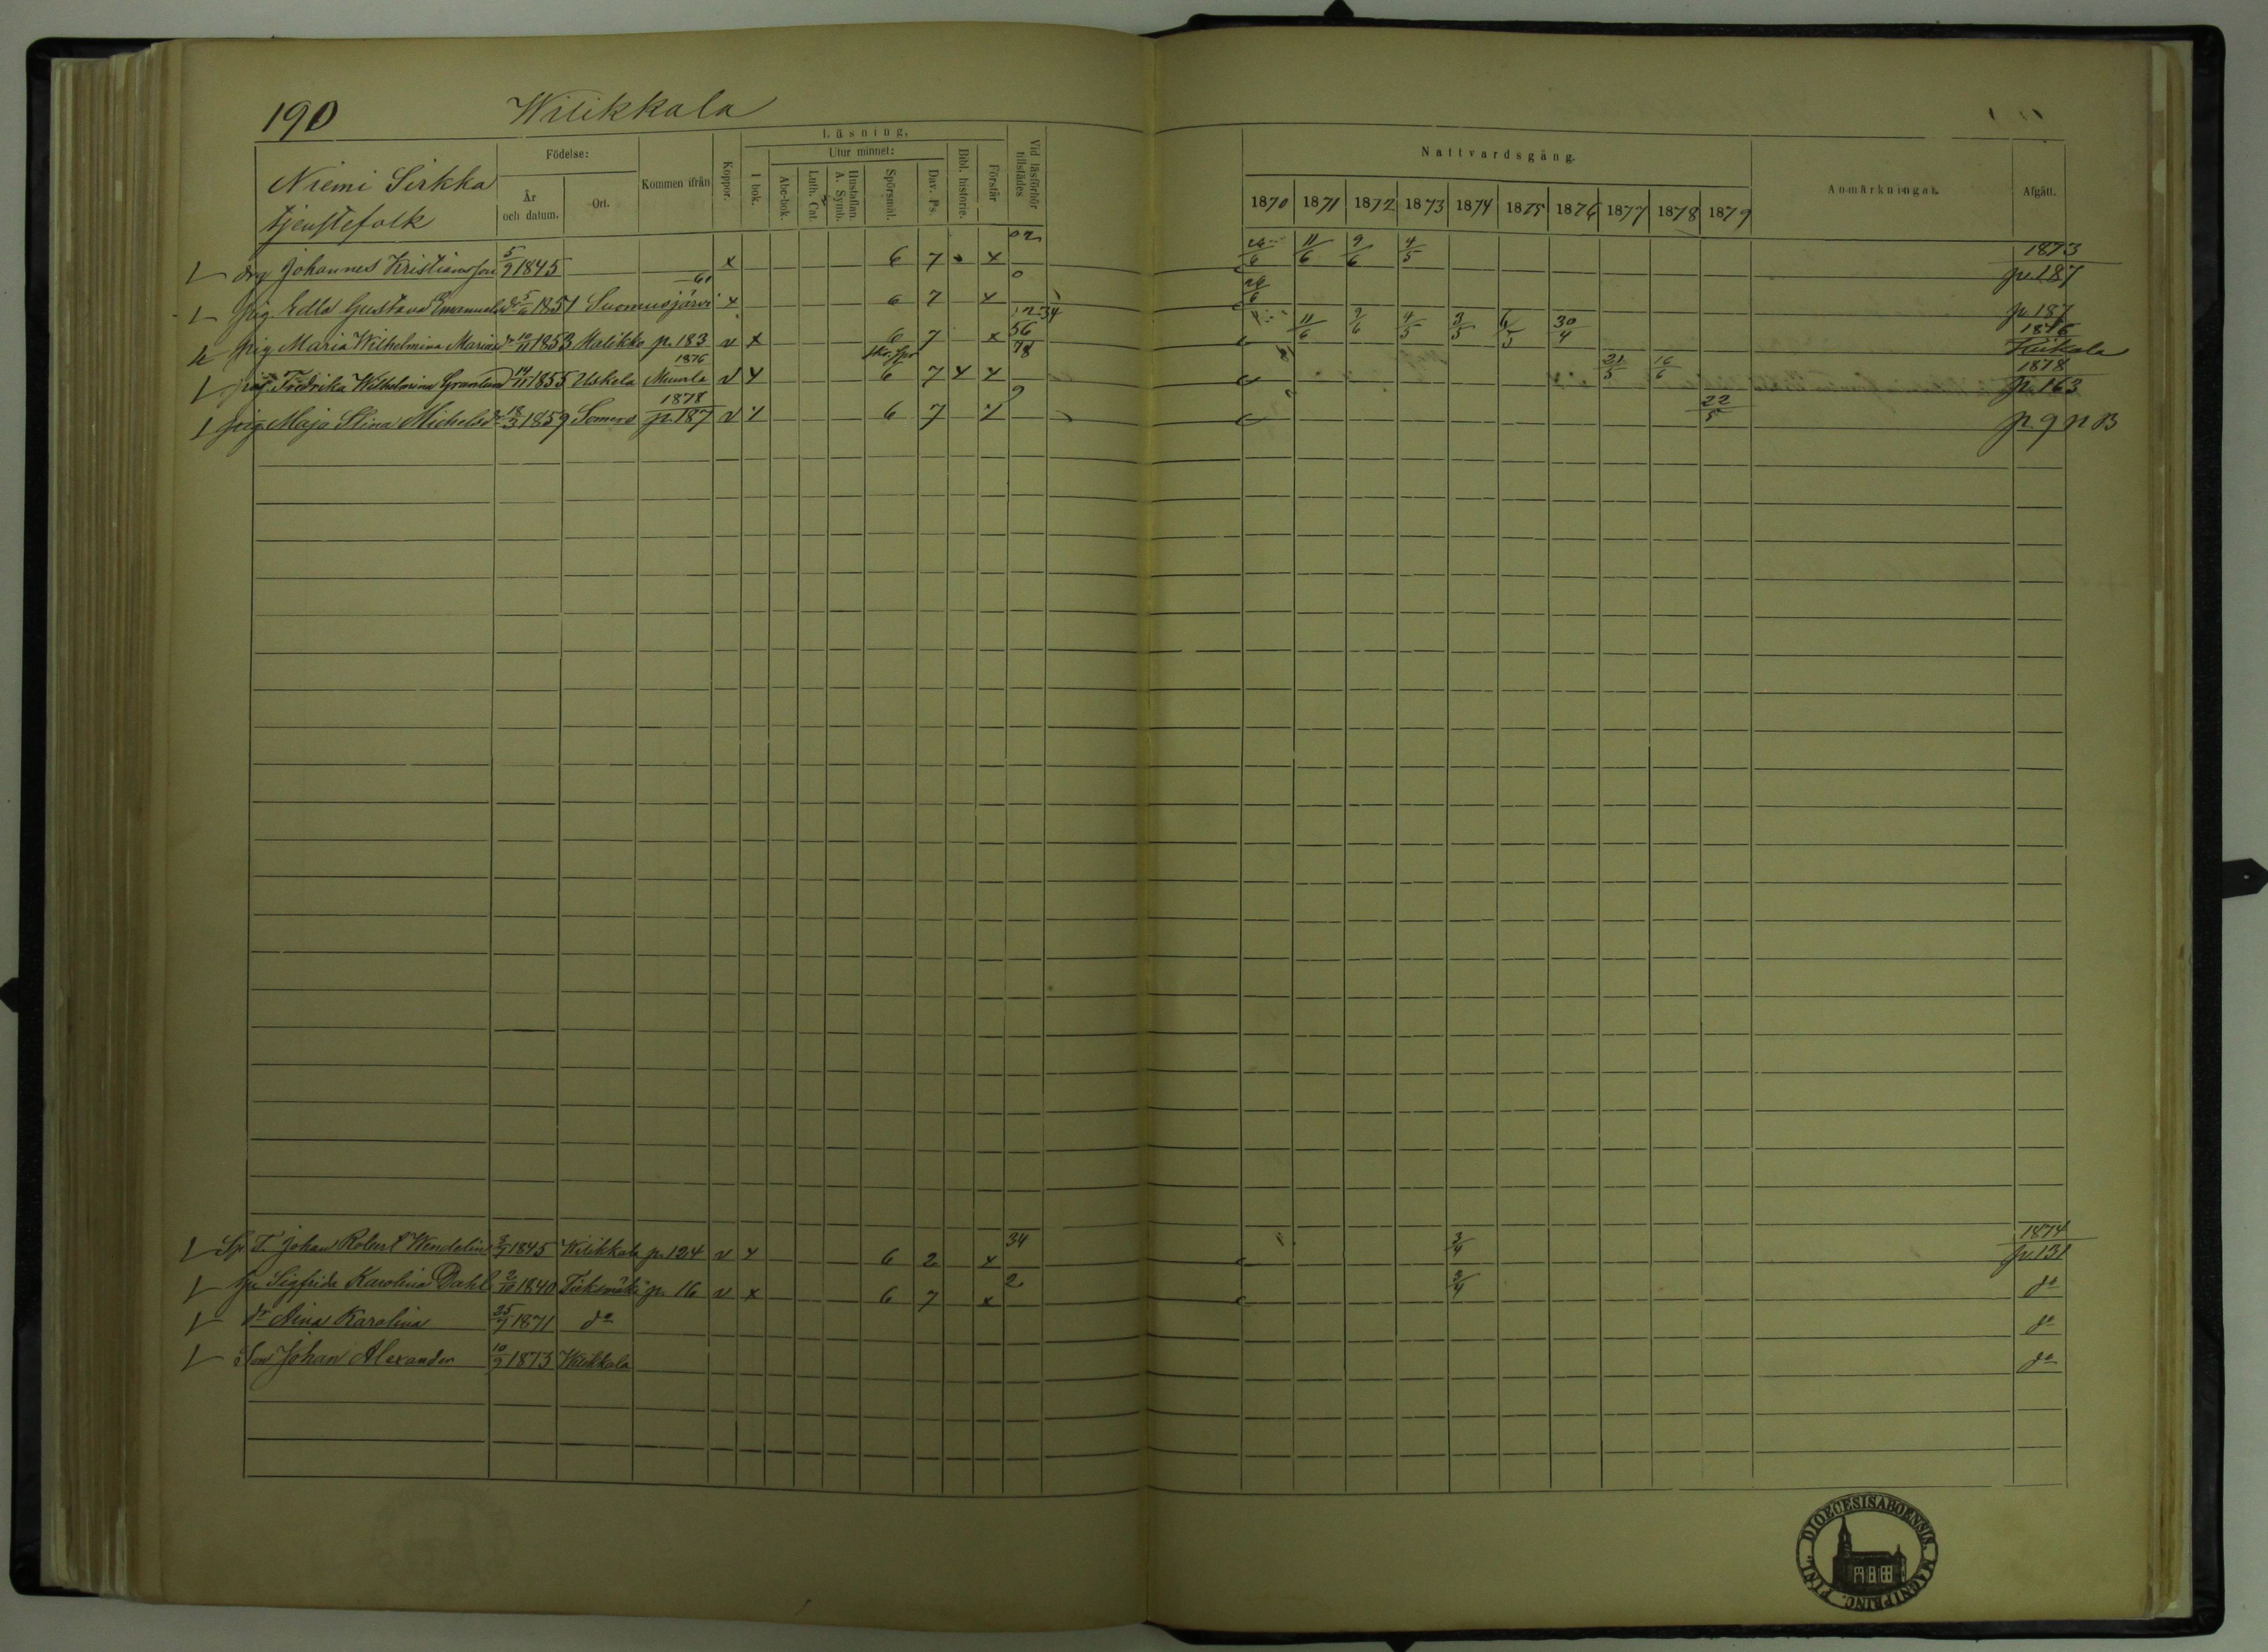 190 Wilikkala
Niemi Sirkka
tjenstefolk
Födelse:
År och datum.
Ort.
Kommen ifrån
Koppor.
Läsning.
I bok.
Utur minnet:
Abc-bok.
Luth. Cat.
Hustaflan. A. Symb.
Spörsmål.
Dav. Ps.
Bibl. historie.
Förstår
Vid läsförhör tillstädes
Nattvardsgång.
1870 1871 1872 1873 1874 1875 1876 1877 1878 1879
Anmärkningar.
Afgått.
drg Johannes Kristiansson 5/9 1845 x 6 7 x 02 26/6 11/6 9/6 4/5 1873 p. 187
pig. Edla Gustava Emanuelsdr 5/6 1851 Suomusjärvi 61 x 6 7 x 0 26/6 p. 187
pig Maria Wilhelmina 12/11 1853 Halikko p. 183 v x 6 7 x 56 11/6 9/6 4/5 3/5 6/5 30/4 1876 Kiikala
pig Fredrika Wilhelmina Granlund 14/11 1855 Uskela 1876 Muurla v x 6 7 x x 78 21/5 16/6 1878 p. 163
pig Maja Stina Michelsdr 18/3 1859 Somero 1878 p. 187 v 6 7 9 22/5 p. 9 n B
Sp. T. Johan Robert Wendelin 1845 Wilikkala p. 124 v x 6 2 x 34 3/4 1874 p. 131
hu Sigfrida Karolina Dahl 2/10 1840 p. 16 v x 6 7 x 2 3/4 do
dr Alina Karolina 25/9 1871 do do
Son Johan Alexander 10/9 1873 Wilikkala do
FINL. DIOECESIS ABOENSIS. MAGNI PRINC.